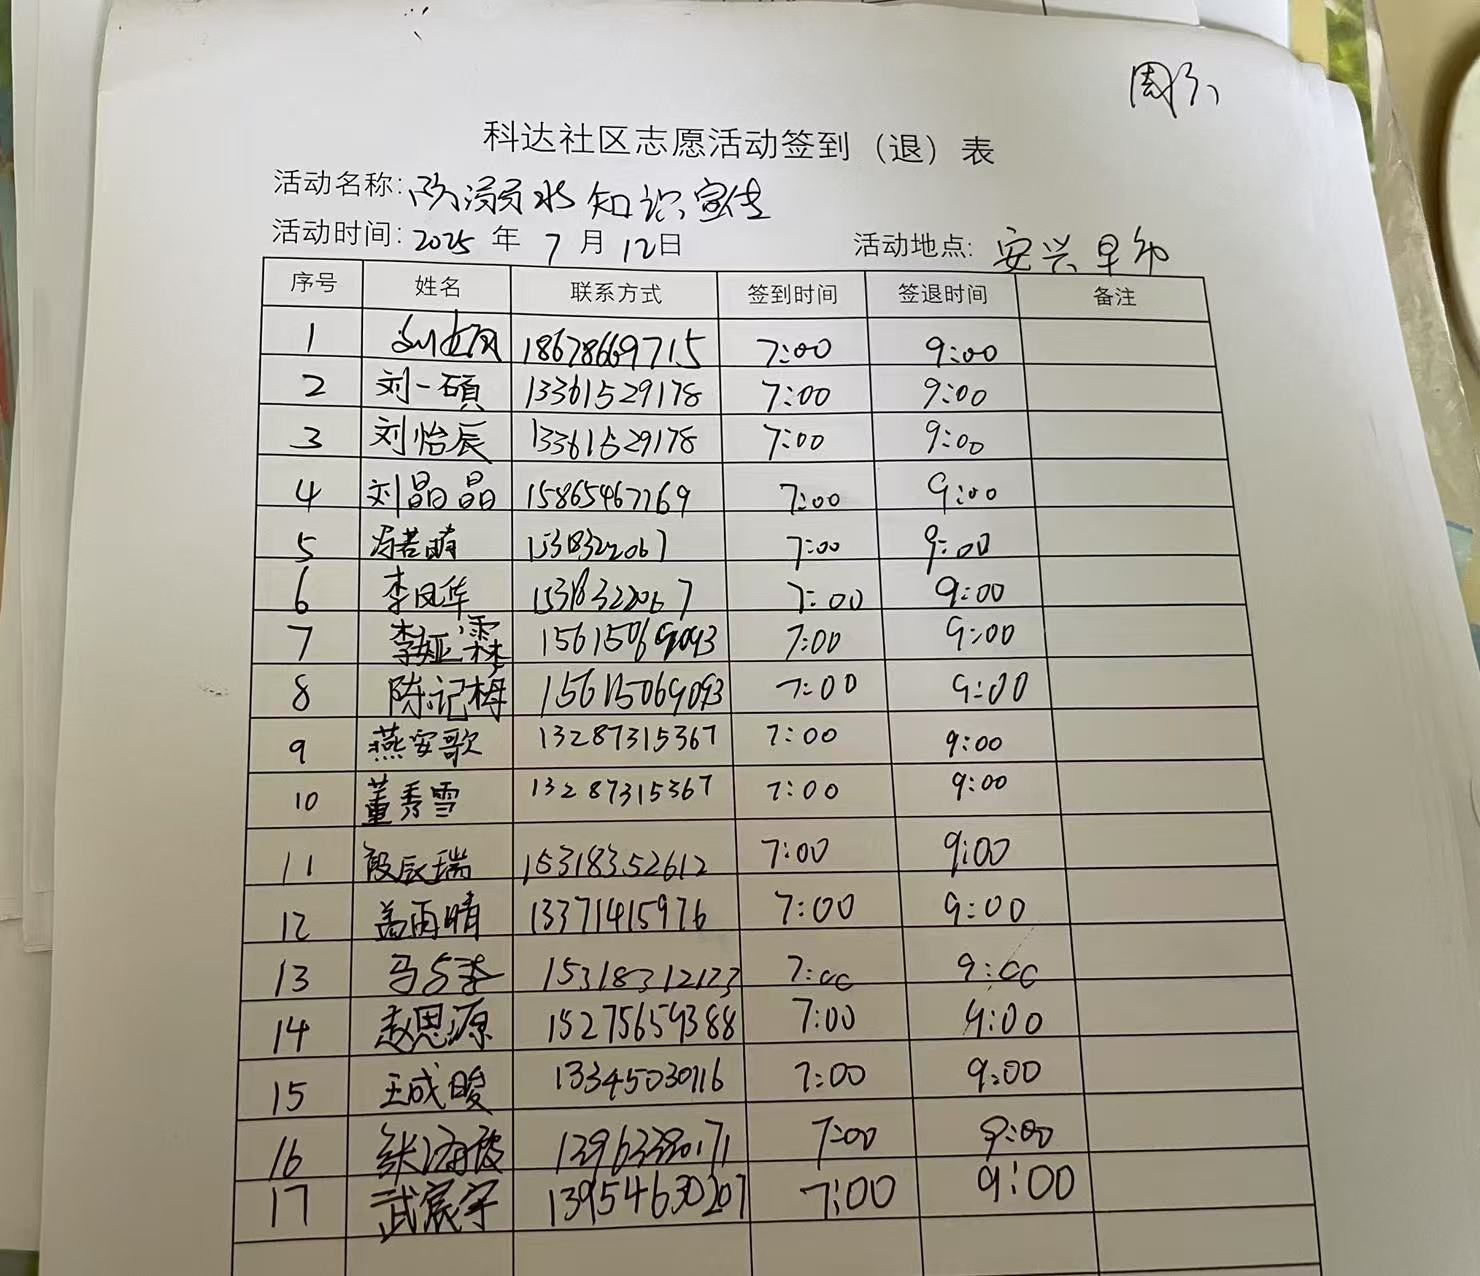 周
科达社区志愿活动签到（退）表
活动名称: 防溺水知识宣传
活动时间: 2025 年 7 月 12日 活动地点: 安兴早市
序号 姓名 联系方式 签到时间 签退时间 备注
1 刘 18678669715 7:00 9:00
2 刘一硕 13361529178 7:00 9:00
3 刘怡辰 13361529178 7:00 9:00
4 刘晶晶 15865467769 7:00 9:00
5 若萌 1531322067 7:00 9:00
6 李凤华 7:00 9:00
7 李娅霖 15615069093 7:00 9:00
8 陈记栂 15615069093 7:00 9:00
9 燕安歌 13287315367 7:00 9:00
10 董秀雪 13287315367 7:00 9:00
11 殷辰瑞 15318352612 7:00 9:00
12 盖雨晴 13371415976 7:00 9:00
13 马 15318312123 7:00 9:00
14 赵思源 15275659388 7:00 9:00
15 王成晙 13345030116 7:00 9:00
16 张海波 13963380171 7:00 9:00
17 武宸宇 13954630207 7:00 9:00